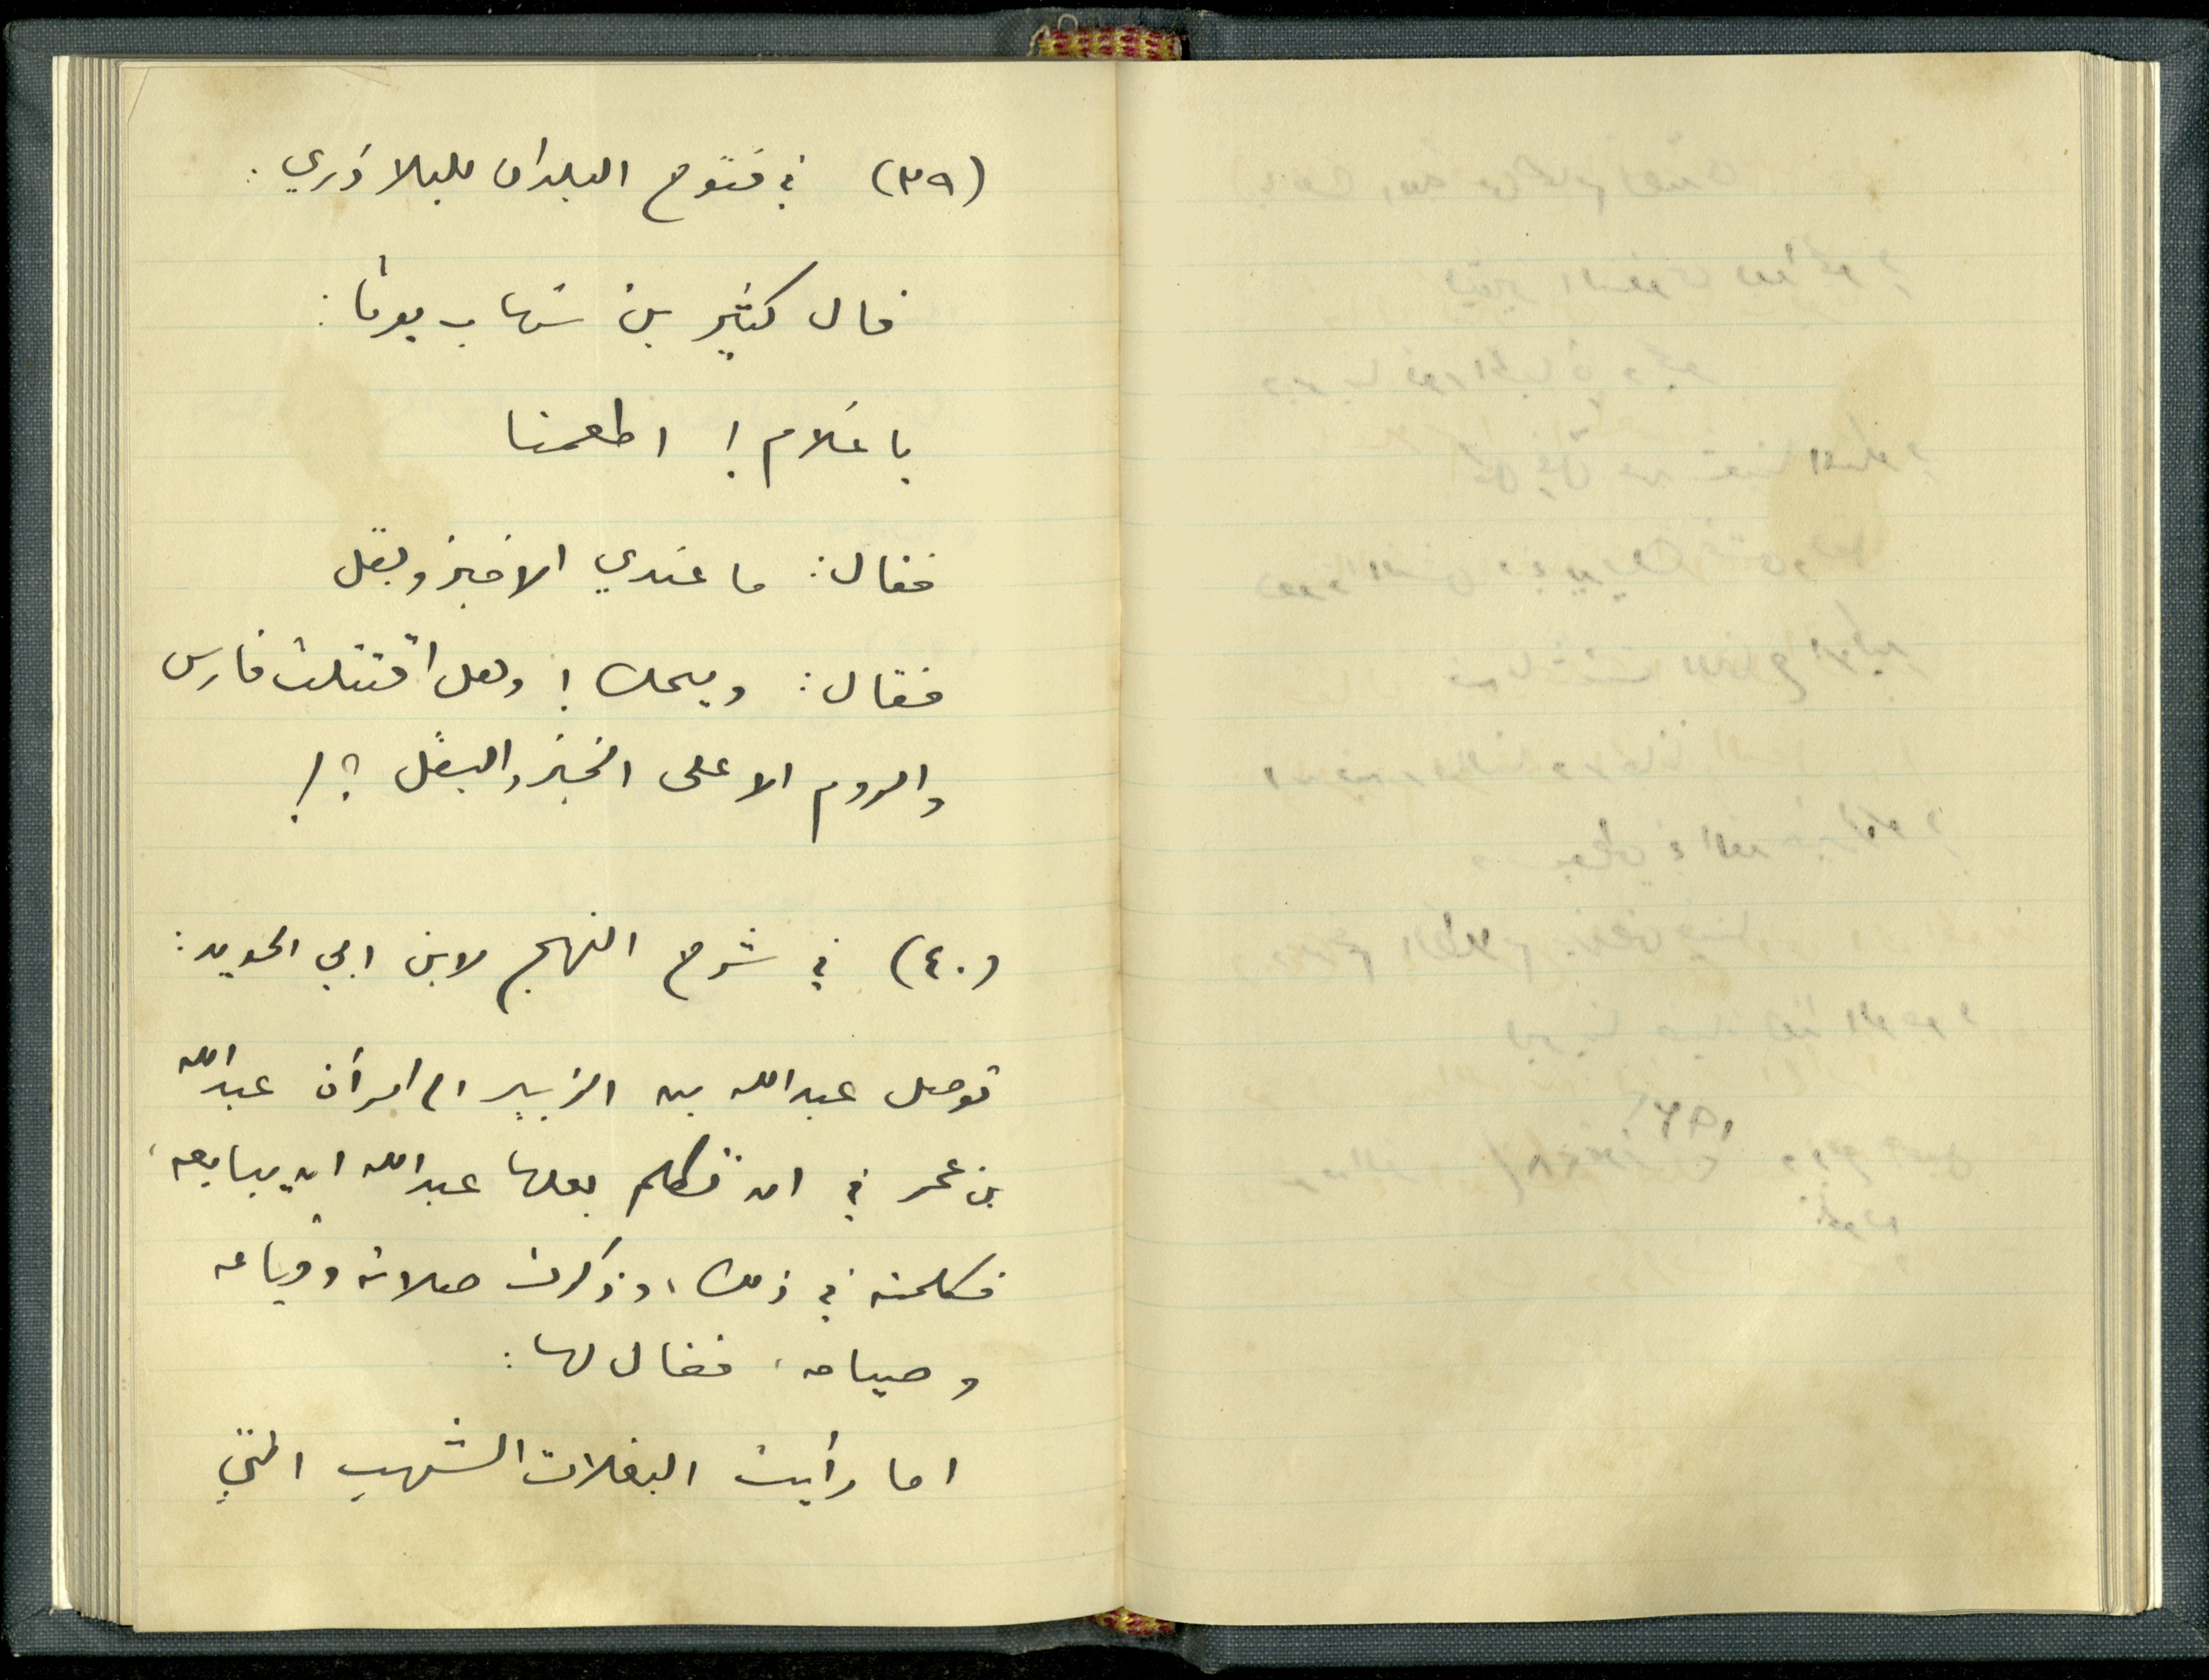 (٣٩) في فتوح البلدان للبلاذري :
قال كثير بن شهاب يوماً :
يا غلام ! اطعمنا
فقال : ما عندي الا خبز وبقل
فقال : ويحك ! وهل اقتتلت فارس
والروم الا على الخبز والبقل ؟!
(٤٠) في شرح النهج لابن ابي الحديد :
توصل عبدالله بن الزبير الى امرأة عبدالله
بن عمر في ان تكلم بعلها عبدالله ان يبايعه ،
فكلمته في ذلك ، وذكرت صلاته وقيامه
وصيامه ، فقال لها :
اما رأيت البغلات الشهب التي